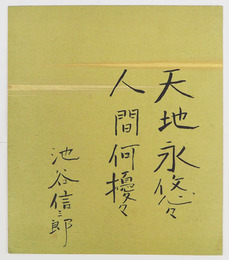 天地永悠々
人間何擾々
池谷信三郎